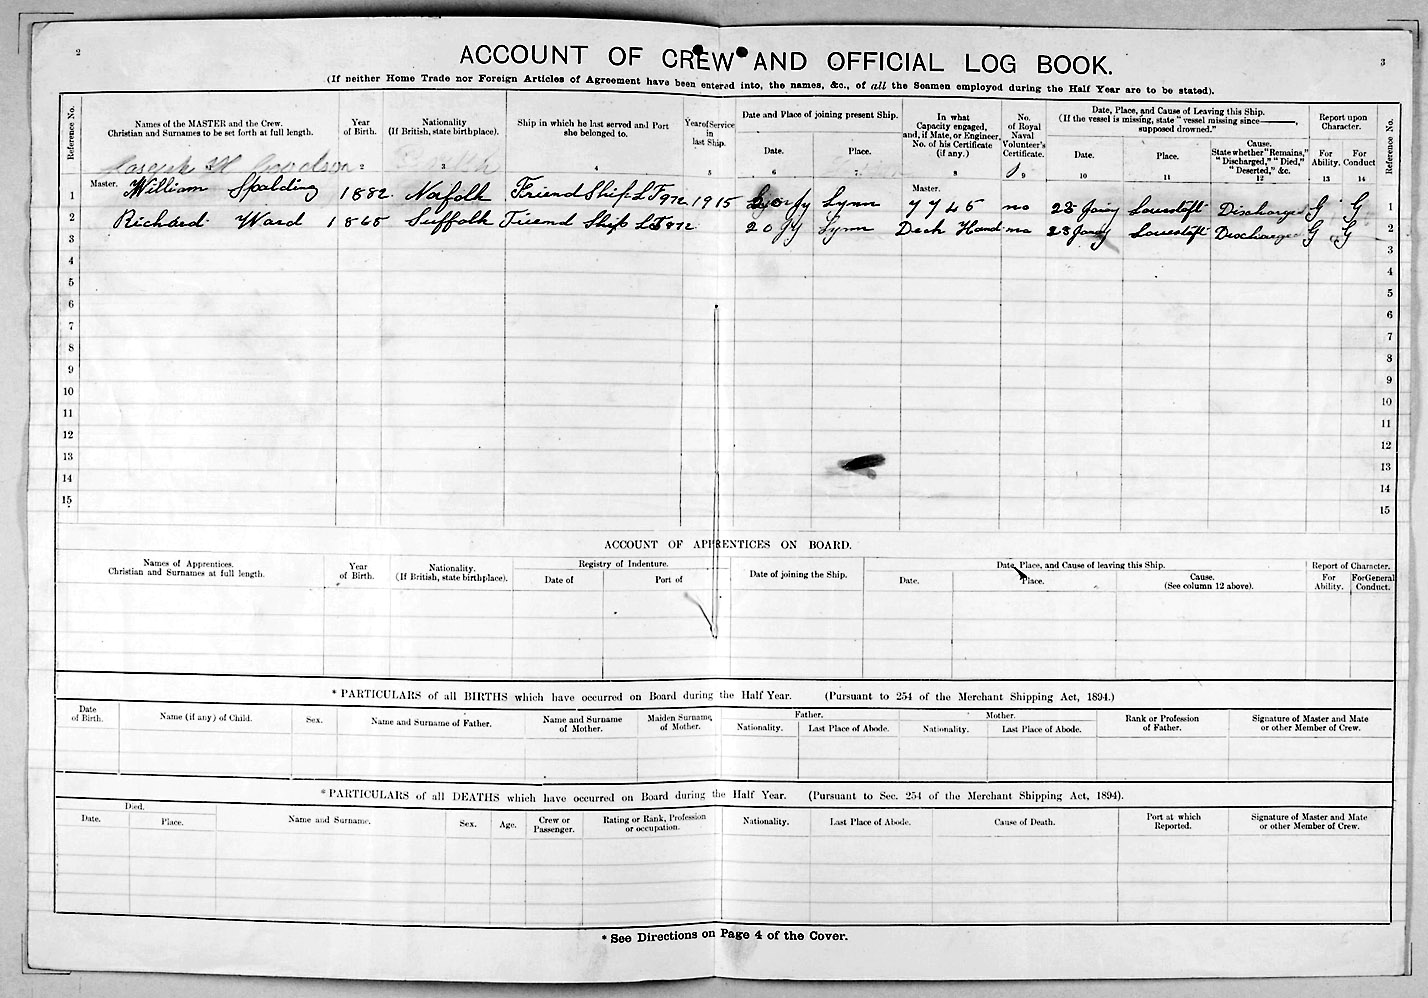 2
3
ACCOUNT OF CREW AND OFFICIAL LOG BOOK.
(If neither Home Trade nor Foreign Articles of Agreement have been entered into, the names, &c., of all the Seamen employed during the Half Year are to be stated).
Reference No.
Names of the MASTER and the Crew.
Christian and Surnames to be set forth at full length.
Year
of Birth.
Nationality
(If British, state birthplace).
Ship in which he last served and Port
she belonged to.
Year of Service
in
last Ship.
Date and Place of joining present Ship.
Date.
Place.
In what
Capacity engaged,
and, if Mate, or Engineer,
No. of his Certificate
(if any.)
No.
of Royal
Naval
Volunteer's
Certificate.
Date, Place, and Cause of Leaving this Ship.
(If the vessel is missing, state "vessel missing since———,
supposed drowned."
Date.
Place.
Cause.
State whether "Remains,"
"Discharged," "Died,"
"Deserted," &c.
Report upon
Character.
For
Ability.
For
Conduct
Reference No.
2 3 4 5 6 7 8 9 10 11 12 13 14
1 Master. William Spalding 1882 Norfolk Friend Ship LT972 1915 Lynn Master. 7745 no 23 Lowestoft Discharged G G 1
2 Richard Ward 1868 Suffolk Friend Ship LT972 20 Lynn Deck Hand no 23 Lowestoft Discharged G G 2
3 3
4 4
5 5
6 6
7 7
8 8
9 9
10 10
11 11
12 12
13 13
14 14
15 15
ACCOUNT OF APPRENTICES ON BOARD.
Names of Apprentices.
Christian and Surnames at full length.
Year
of Birth.
Nationality.
(If British, state birthplace).
Registry of Indenture.
Date of
Port of
Date of joining the Ship.
Date, Place, and Cause of leaving this Ship.
Date.
Place.
Cause.
(See column 12 above).
Report of Character.
For
Ability.
For General
Conduct.
* PARTICULARS of all BIRTHS which have occurred on Board during the Half Year. (Pursuant to 254 of the Merchant Shipping Act, 1894.)
Date
of Birth.
Name (if any) of Child.
Sex.
Name and Surname of Father.
Name and Surname
of Mother.
Maiden Surname
of Mother.
Father.
Nationality.
Last Place of Abode.
Mother.
Nationality.
Last Place of Abode.
Rank or Profession
of Father.
Signature of Master and Mate
or other Member of Crew.
* PARTICULARS of all DEATHS which have occurred on Board during the Half Year. (Pursuant to Sec. 254 of the Merchant Shipping Act, 1894).
Died.
Date.
Place.
Name and Surname.
Sex.
Age.
Crew or
Passenger.
Rating or Rank, Profession
or occupation.
Nationality.
Last Place of Abode.
Cause of Death.
Port at which
Reported.
Signature of Master and Mate
or other Member of Crew.
* See Directions on Page 4 of the Cover.